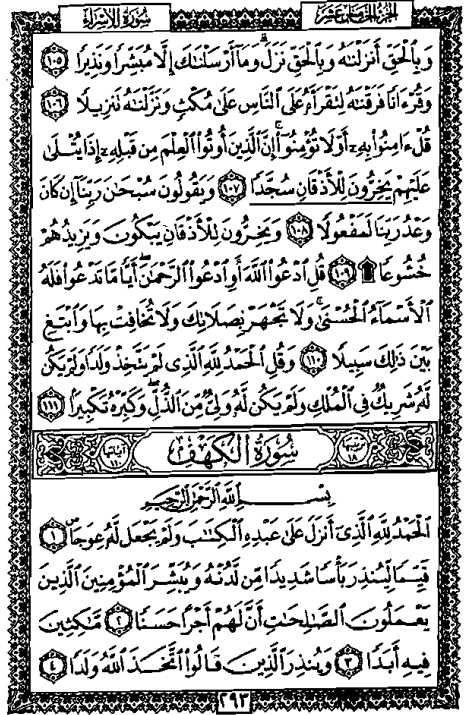 الجزء الخامس عشر
سورة الإسراء
وَبِالْحَقِّ أَنزَلْنَاهُ وَبِالْحَقِّ نَزَلَ ۗ وَمَا أَرْسَلْنَاكَ إِلَّا مُبَشِّرًا وَنَذِيرًا ١٠٥
وَقُرْءَانًا فَرَقْنَاهُ لِتَقْرَأَهُ عَلَى النَّاسِ عَلَىٰ مُكْثٍ وَنَزَّلْنَاهُ تَنزِيلًا ١٠٦
قُلْ ءَامِنُوا بِهِ أَوْ لَا تُؤْمِنُوا ۚ إِنَّ الَّذِينَ أُوتُوا الْعِلْمَ مِن قَبْلِهِ إِذَا يُتْلَىٰ
عَلَيْهِمْ يَخِرُّونَ لِلْأَذْقَانِ سُجَّدًا ١٠٧ وَيَقُولُونَ سُبْحَانَ رَبِّنَا إِن كَانَ
وَعْدُ رَبِّنَا لَمَفْعُولًا ١٠٨ وَيَخِرُّونَ لِلْأَذْقَانِ يَبْكُونَ وَيَزِيدُهُمْ
خُشُوعًا ۩ ١٠٩ قُلِ ادْعُوا اللَّهَ أَوِ ادْعُوا الرَّحْمَٰنَ ۖ أَيًّا مَّا تَدْعُوا فَلَهُ
الْأَسْمَاءُ الْحُسْنَىٰ ۚ وَلَا تَجْهَرْ بِصَلَاتِكَ وَلَا تُخَافِتْ بِهَا وَابْتَغِ
بَيْنَ ذَٰلِكَ سَبِيلًا ١١٠ وَقُلِ الْحَمْدُ لِلَّهِ الَّذِي لَمْ يَتَّخِذْ وَلَدًا وَلَمْ يَكُن
لَّهُ شَرِيكٌ فِي الْمُلْكِ وَلَمْ يَكُن لَّهُ وَلِيٌّ مِّنَ الذُّلِّ ۖ وَكَبِّرْهُ تَكْبِيرًا ١١١
ترتيبها ١٨ سُورَةُ الْكَهْفِ آياتها ١١٠
بِسْمِ اللَّهِ الرَّحْمَٰنِ الرَّحِيمِ
الْحَمْدُ لِلَّهِ الَّذِي أَنزَلَ عَلَىٰ عَبْدِهِ الْكِتَابَ وَلَمْ يَجْعَل لَّهُ عِوَجًا ۜ ١
قَيِّمًا لِّيُنذِرَ بَأْسًا شَدِيدًا مِّن لَّدُنْهُ وَيُبَشِّرَ الْمُؤْمِنِينَ الَّذِينَ
يَعْمَلُونَ الصَّالِحَاتِ أَنَّ لَهُمْ أَجْرًا حَسَنًا ٢ مَّاكِثِينَ
فِيهِ أَبَدًا ٣ وَيُنذِرَ الَّذِينَ قَالُوا اتَّخَذَ اللَّهُ وَلَدًا ٤
٢٩٣